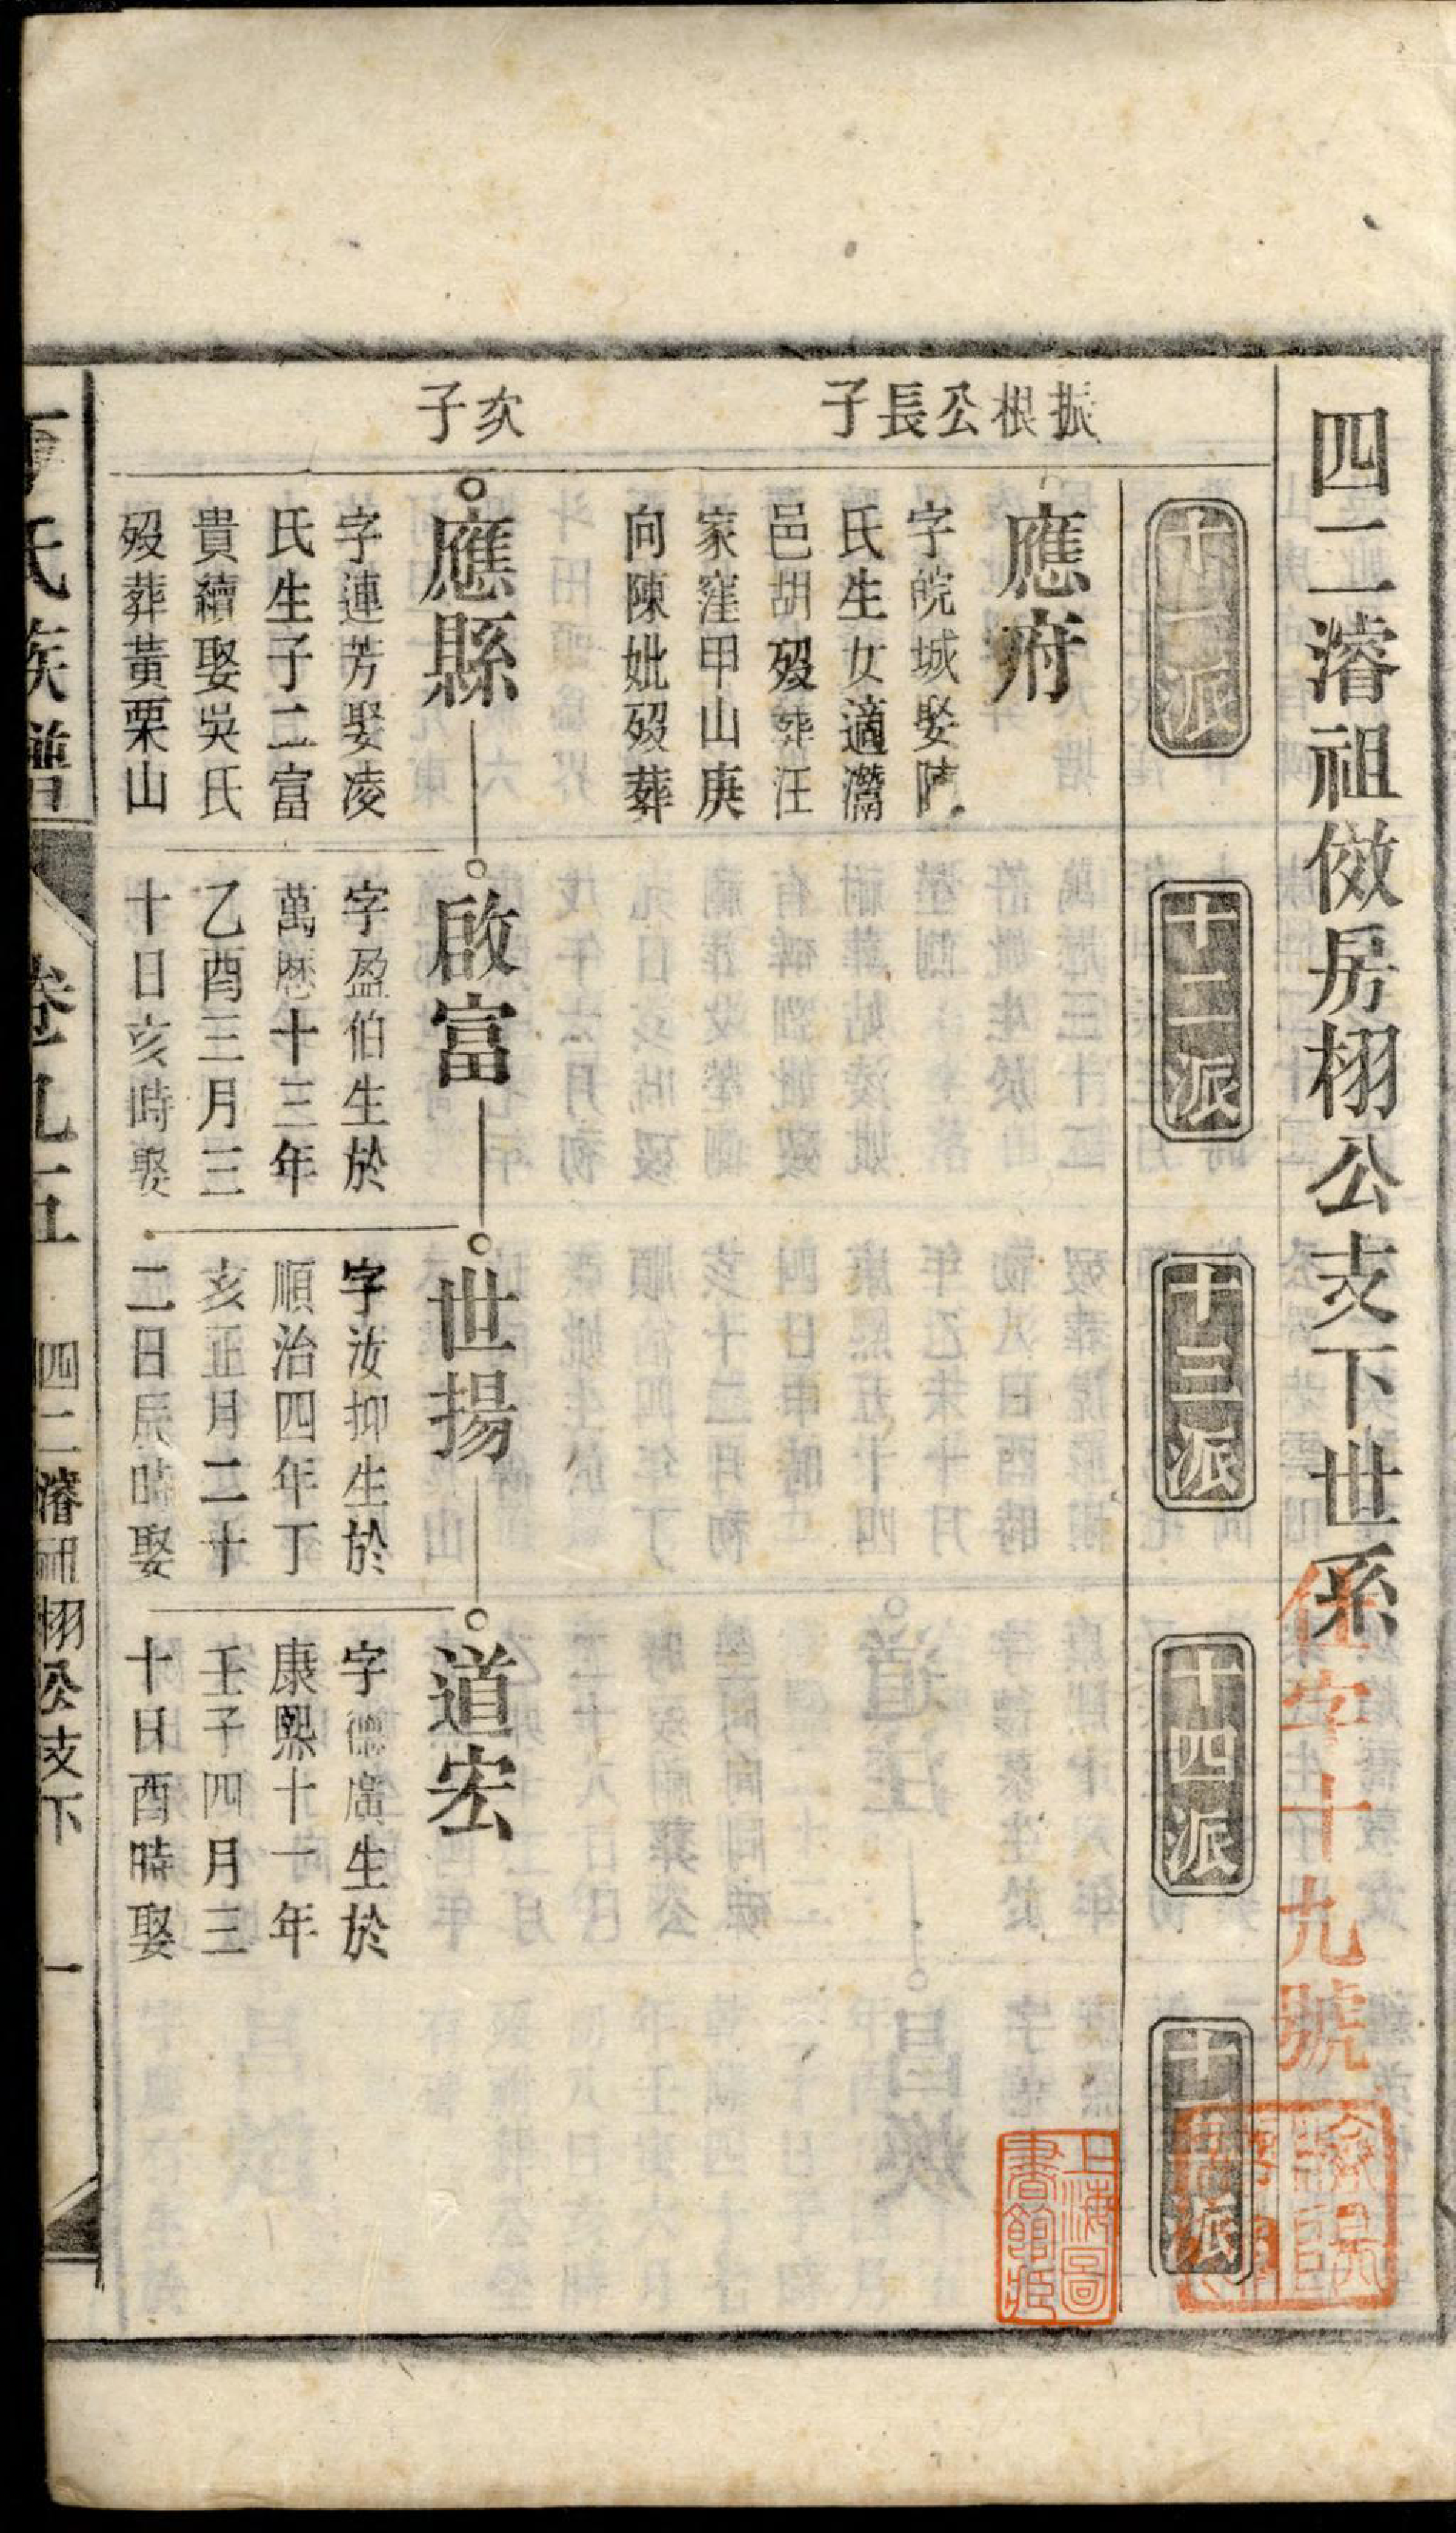 四二濬祖俲房栩公支下世系
任字十九號
十一派
十二派
十三派
十四派
十五派
上海圖
書館藏
振根公長子
應府
字皖城娶陳
氏生女適灊
邑胡歿葬汪
家窪甲山庚
向陳妣歿葬
次子
應縣
字連芳娶凌
氏生子二富
貴續娶吳氏
歿葬黃栗山
啟富
字盈伯生於
萬歷十三年
乙酉三月三
十日亥時娶
世揚
字汝抑生於
順治四年丁
亥正月二十
二日辰時娶
道宏
字德廣生於
康熙十一年
壬子四月三
十日酉時娶
氏族譜
卷九五
四二濬祖栩公支下
一